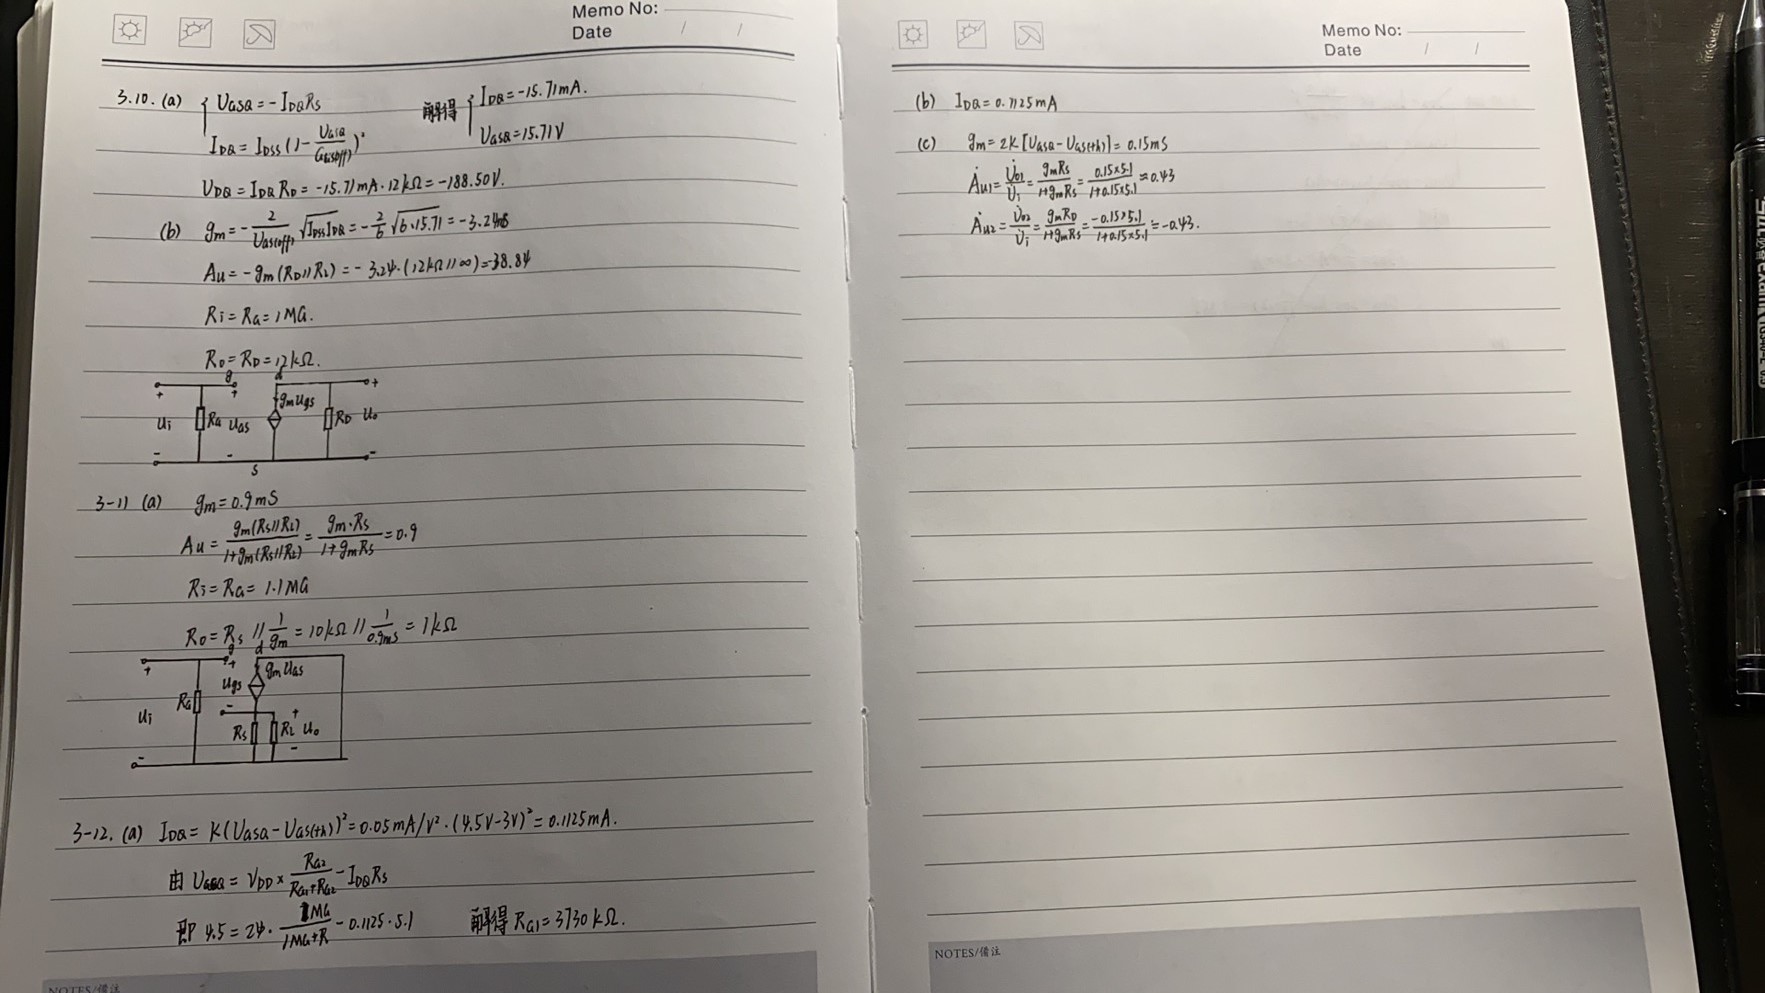 Memo No:
Date / /
3.10. (a) { UGSQ = -IDQRS 解得 { IDQ = -15.71mA.
IDQ = IDSS(1 - UGSQ/UGS(off))² UGSQ = 15.71V
UDQ = IDQ RD = -15.71mA·12kΩ = -188.50V.
(b) gm = -2/UGS(off) √IDSSIDQ = -2/6 √6·15.71 = -3.24mS
Au = -gm(RD//RL) = -3.24·(12kΩ//∞) = -38.84
Ri = RG = 1MΩ.
Ro = RD = 12kΩ.
g d
+ + gmUgs +
Ui RG UGS RD Uo
- - -
S
3-11 (a) gm = 0.9mS
Au = gm(RS//RL)/1+gm(RS//RL) = gm·RS/1+gmRS = 0.9
Ri = RG = 1.1MΩ
Ro = RS // 1/gm = 10kΩ // 1/0.9mS = 1kΩ
g d
+ + gmUGS
Ugs
Ui RG - +
RS RL Uo
- -
3-12. (a) IDQ = K(UGSQ - UGS(th))² = 0.05mA/V²·(4.5V-3V)² = 0.1125mA.
由 UGSQ = VDD × RG2/RG1+RG2 - IDQRS
即 4.5 = 24· 1MΩ/1MΩ+R - 0.1125·5.1 解得 RG1 = 3730kΩ.
NOTES/備注
Memo No:
Date / /
(b) IDQ = 0.1125mA
(c) gm = 2K[UGSQ - UGS(th)] = 0.15mS
Au1 = Uo1/Ui = gmRS/1+gmRS = 0.15×5.1/1+0.15×5.1 ≈ 0.43
Au2 = Uo2/Ui = gmRD/1+gmRS = -0.15×5.1/1+0.15×5.1 = -0.43.
NOTES/備注